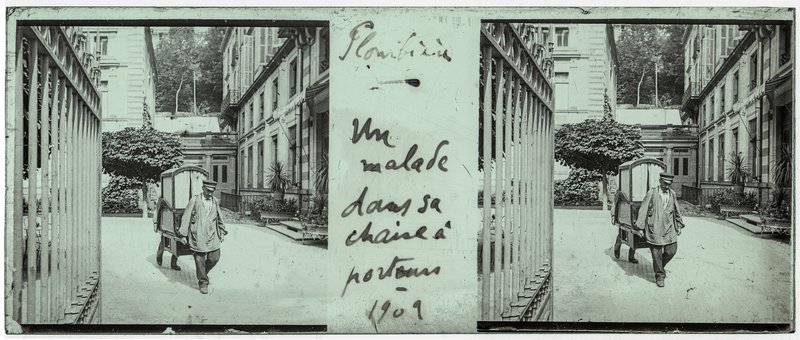 Plombières
Un
malade
dans sa
chaise à
porteurs
1909